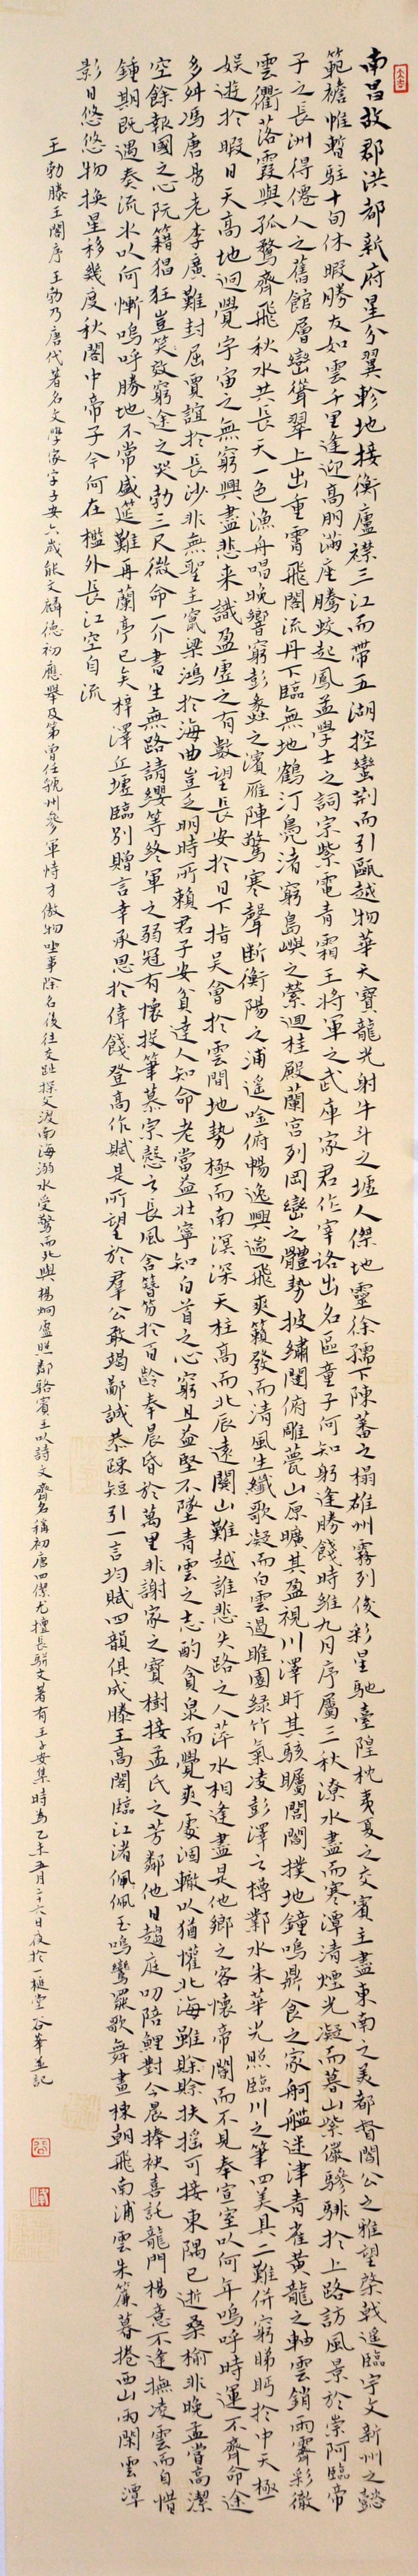 南昌故郡洪都新府星分翼軫地接衡廬襟三江而帶五湖控蠻荊而引甌越物華天寶龍光射牛斗之墟人傑地靈徐孺下陳蕃之榻雄州霧列俊彩星馳臺隍枕夷夏之交賓主盡東南之美都督閻公之雅望棨戟遙臨宇文新州之懿
範襜帷暫駐十旬休暇勝友如雲千里逢迎高朋滿座騰蛟起鳳孟學士之詞宗紫電青霜王將軍之武庫家君作宰路出名區童子何知躬逢勝餞時維九月序屬三秋潦水盡而寒潭清煙光凝而暮山紫儼驂騑於上路訪風景於崇阿臨帝
子之長洲得僊人之舊館層巒聳翠上出重霄飛閣流丹下臨無地鶴汀鳧渚窮島嶼之縈迴桂殿蘭宮列岡巒之體勢披繡闥俯雕甍山原曠其盈視川澤盱其駭矚閭閻撲地鐘鳴鼎食之家舸艦迷津青雀黃龍之軸雲銷雨霽彩徹
雲衢落霞與孤鶩齊飛秋水共長天一色漁舟唱晚響窮彭蠡之濱雁陣驚寒聲斷衡陽之浦遙吟俯暢逸興遄飛爽籟發而清風生纖歌凝而白雲遏睢園綠竹氣凌彭澤之樽鄴水朱華光照臨川之筆四美具二難併窮睇眄於中天極
娛遊於暇日天高地迥覺宇宙之無窮興盡悲來識盈虛之有數望長安於日下指吳會於雲間地勢極而南溟深天柱高而北辰遠關山難越誰悲失路之人萍水相逢盡是他鄉之客懷帝閽而不見奉宣室以何年嗚呼時運不齊命途
多舛馮唐易老李廣難封屈賈誼於長沙非無聖主竄梁鴻於海曲豈乏明時所賴君子安貧達人知命老當益壯寧知白首之心窮且益堅不墜青雲之志酌貪泉而覺爽處涸轍以猶懽北海雖賒扶搖可接東隅已逝桑榆非晚孟嘗高潔
空餘報國之心阮籍猖狂豈效窮途之哭勃三尺微命一介書生無路請纓等終軍之弱冠有懷投筆慕宗愨之長風舍簪笏於百齡奉晨昏於萬里非謝家之寶樹接孟氏之芳鄰他日趨庭叨陪鯉對今晨捧袂喜託龍門楊意不逢撫凌雲而自惜
鍾期既遇奏流水以何慚嗚呼勝地不常盛筵難再蘭亭已矣梓澤丘墟臨別贈言幸承恩於偉餞登高作賦是所望於羣公敢竭鄙誠恭疎短引一言均賦四韻俱成滕王高閣臨江渚佩玉鳴鸞罷歌舞畫棟朝飛南浦雲朱簾暮捲西山雨閑雲潭
影日悠悠物換星移幾度秋閣中帝子今何在檻外長江空自流
王勃滕王閣序王勃乃唐代著名文學家字子安六歲能文麟德初應舉及第曾任虢州參軍恃才傲物坐事除名後往交趾探父渡南海溺水受驚而死與楊炯盧照鄰駱賓王以詩文齊名稱初唐四傑尤擅長駢文著有王子安集時為乙未五月二十六日夜於一槌堂谷華並記